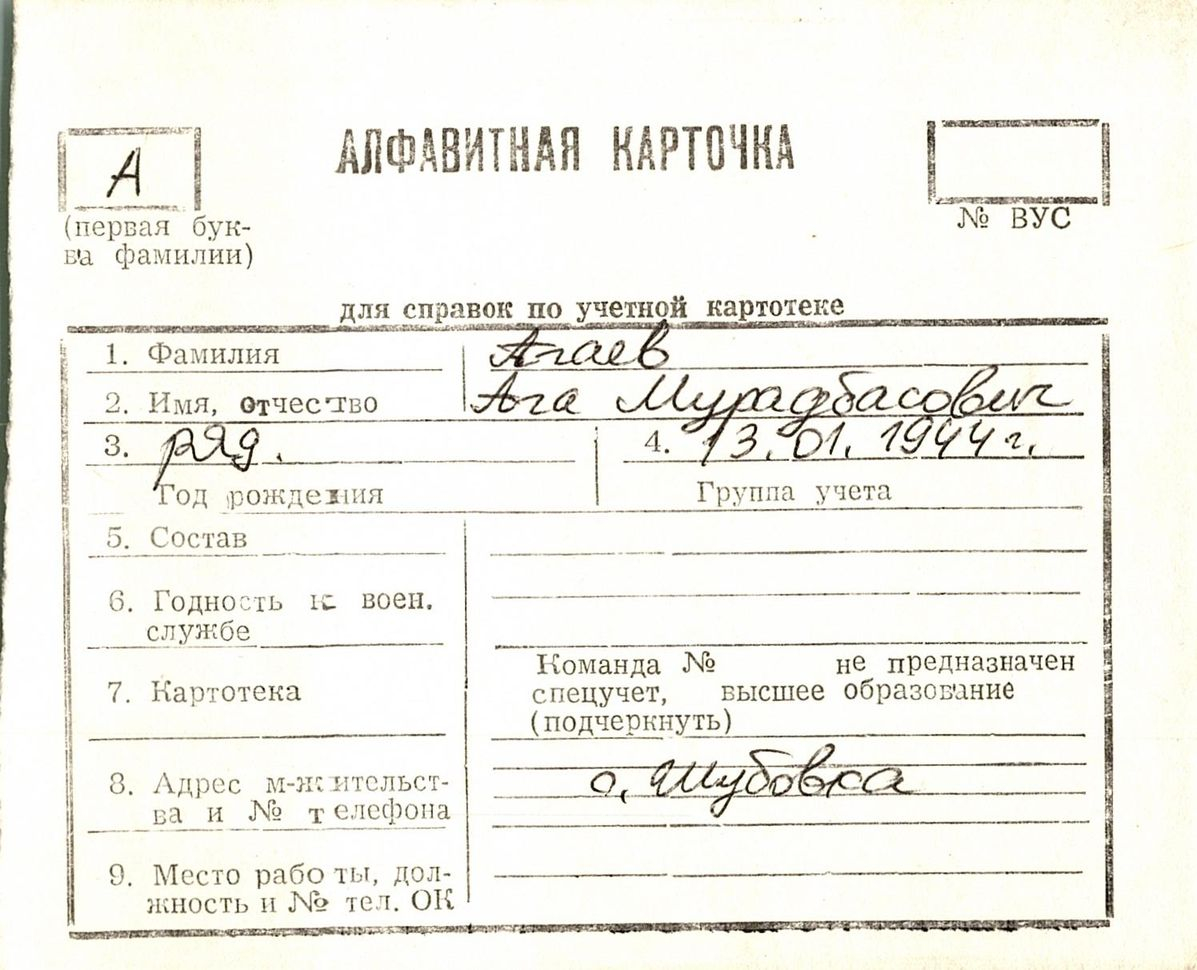 А АЛФАВИТНАЯ КАРТОЧКА
(первая бук-
ва фамилии)
№ ВУС
для справок по учетной картотеке
1. Фамилия Агаев
2. Имя, отчество Ага Мурадбасович
3. ряд. 4. 13.01.1944 г.
Год рождения Группа учета
5. Состав
6. Годность к воен.
службе
7. Картотека
Команда № не предназначен
спецучет, высшее образование
(подчеркнуть)
8. Адрес м-жительст-
ва и № телефона
с. Шубовка
9. Место работы, дол-
жность и № тел. ОК